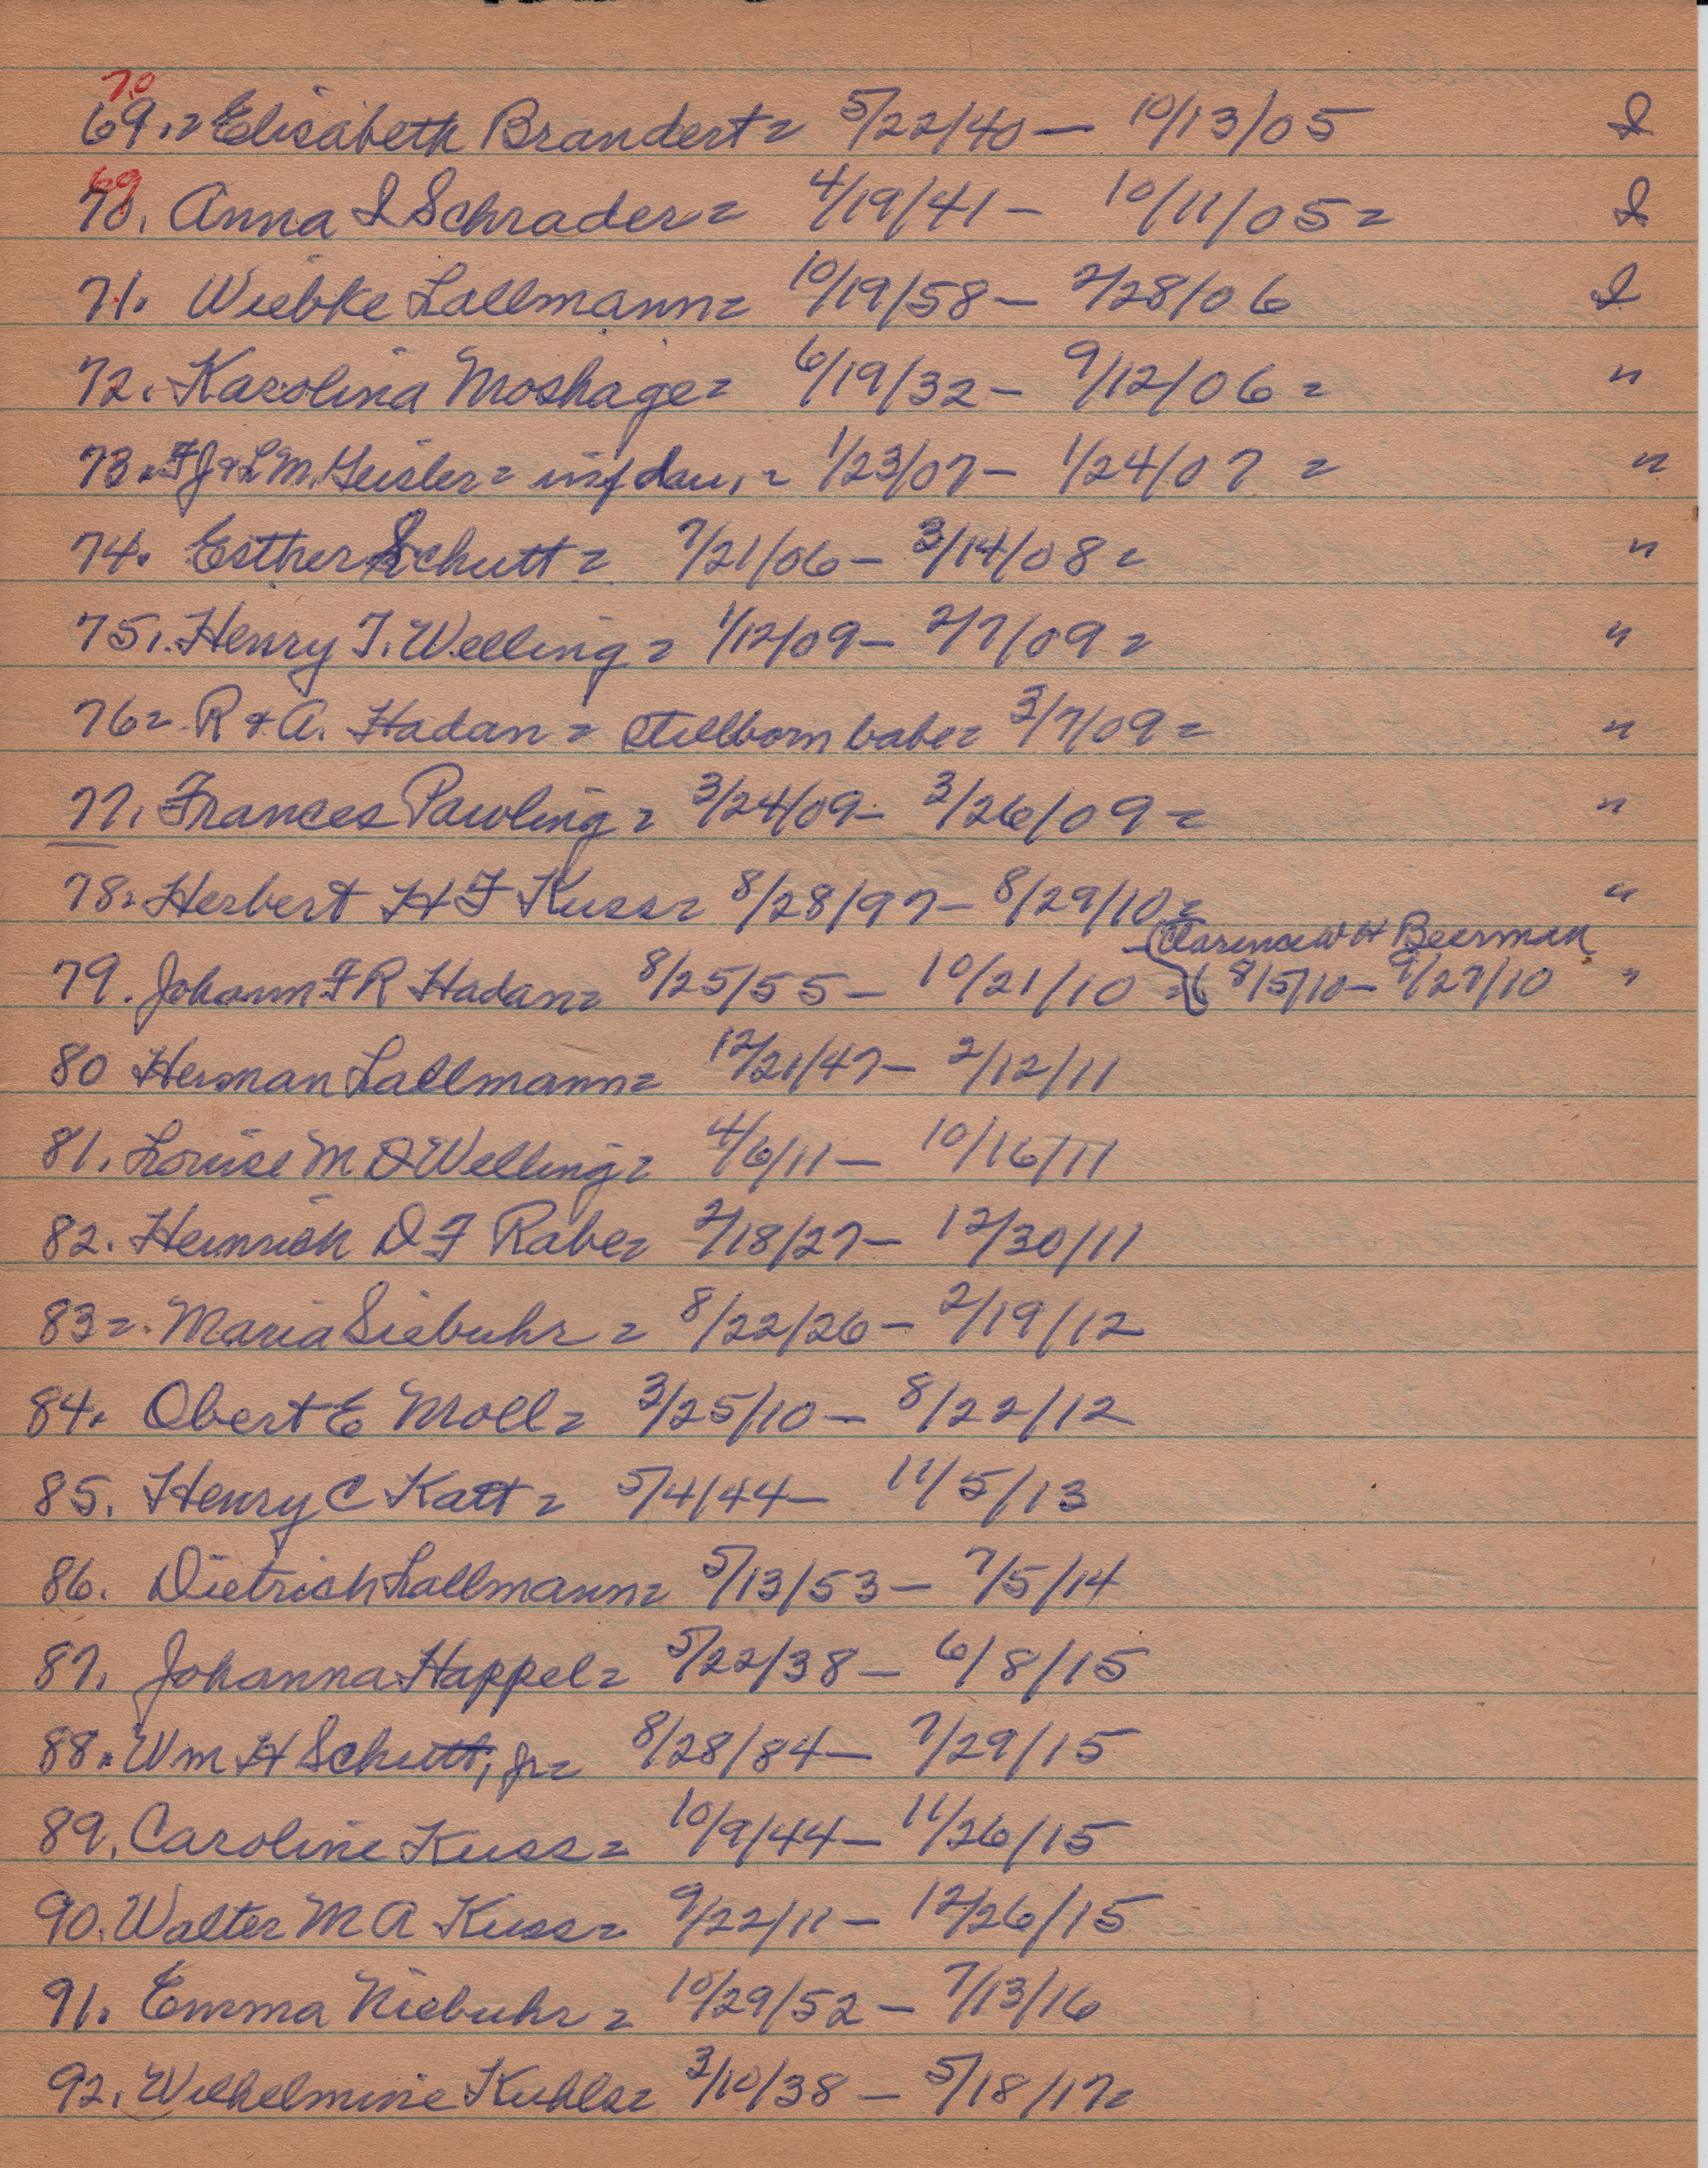 70
69.= Elisabeth Brandert = 5/22/40 — 10/13/05 I
69
70. Anna I Schrader = 4/19/41 - 10/11/05 = I
71. Wiebke Lallmann = 10/19/58 - 2/28/06 I
72. Karolina Moshage = 6/19/32 - 9/12/06 = "
73. F J & L M. Geisler = inf dau. = 1/23/07 - 1/24/07 = "
74. Esther Schutt = 7/21/06 - 3/14/08 = "
75. Henry T. Welling = 1/12/09 - 2/7/09 = "
76 = R & A. Hadan = Stillborn babe = 3/7/09 = "
77. Frances Pawling = 3/24/09 - 3/26/09 = "
78. Herbert H F Kuss = 8/28/97 - 8/29/10 = "
Clarence W H Beerman
79. Johann F R Hadan = 8/25/55 - 10/21/10 = 8/5/10 - 9/27/10 "
80 Herman Lallmann = 12/21/47 - 2/12/11
81. Louise M D Welling = 4/6/11 - 10/16/11
82. Heinrich D F Rabe = 2/18/27 - 12/30/11
83 =. Maria Siebuhr = 8/22/26 - 2/19/12
84. Obert E Moll = 3/25/10 - 8/22/12
85. Henry C Katt = 5/4/44 - 11/5/13
86. Dietrich Lallmann = 5/13/53 - 7/5/14
87. Johanna Happel = 5/22/38 - 6/8/15
88. Wm H Schutt, Jr = 8/28/84 - 7/29/15
89. Caroline Kuss = 10/9/44 - 11/26/15
90. Walter M A Kuss = 9/22/11 - 12/26/15
91. Emma Niebuhr = 10/29/52 - 7/13/16
92. Wilhelmine Kuhls = 3/10/38 - 5/18/17 =